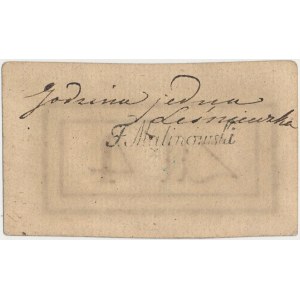 Godzina jedna
Leśniewska
F. Malinowski